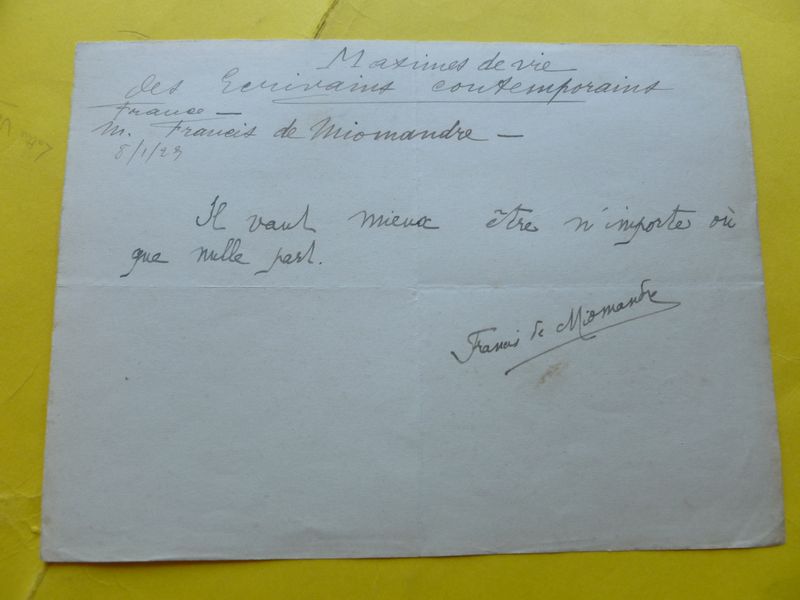 Maximes de vie
des Ecrivains contemporains
France —
M. Francis de Miomandre —
8/1/23
Il vaut mieux être n'importe où
que nulle part.
Francis de Miomandre